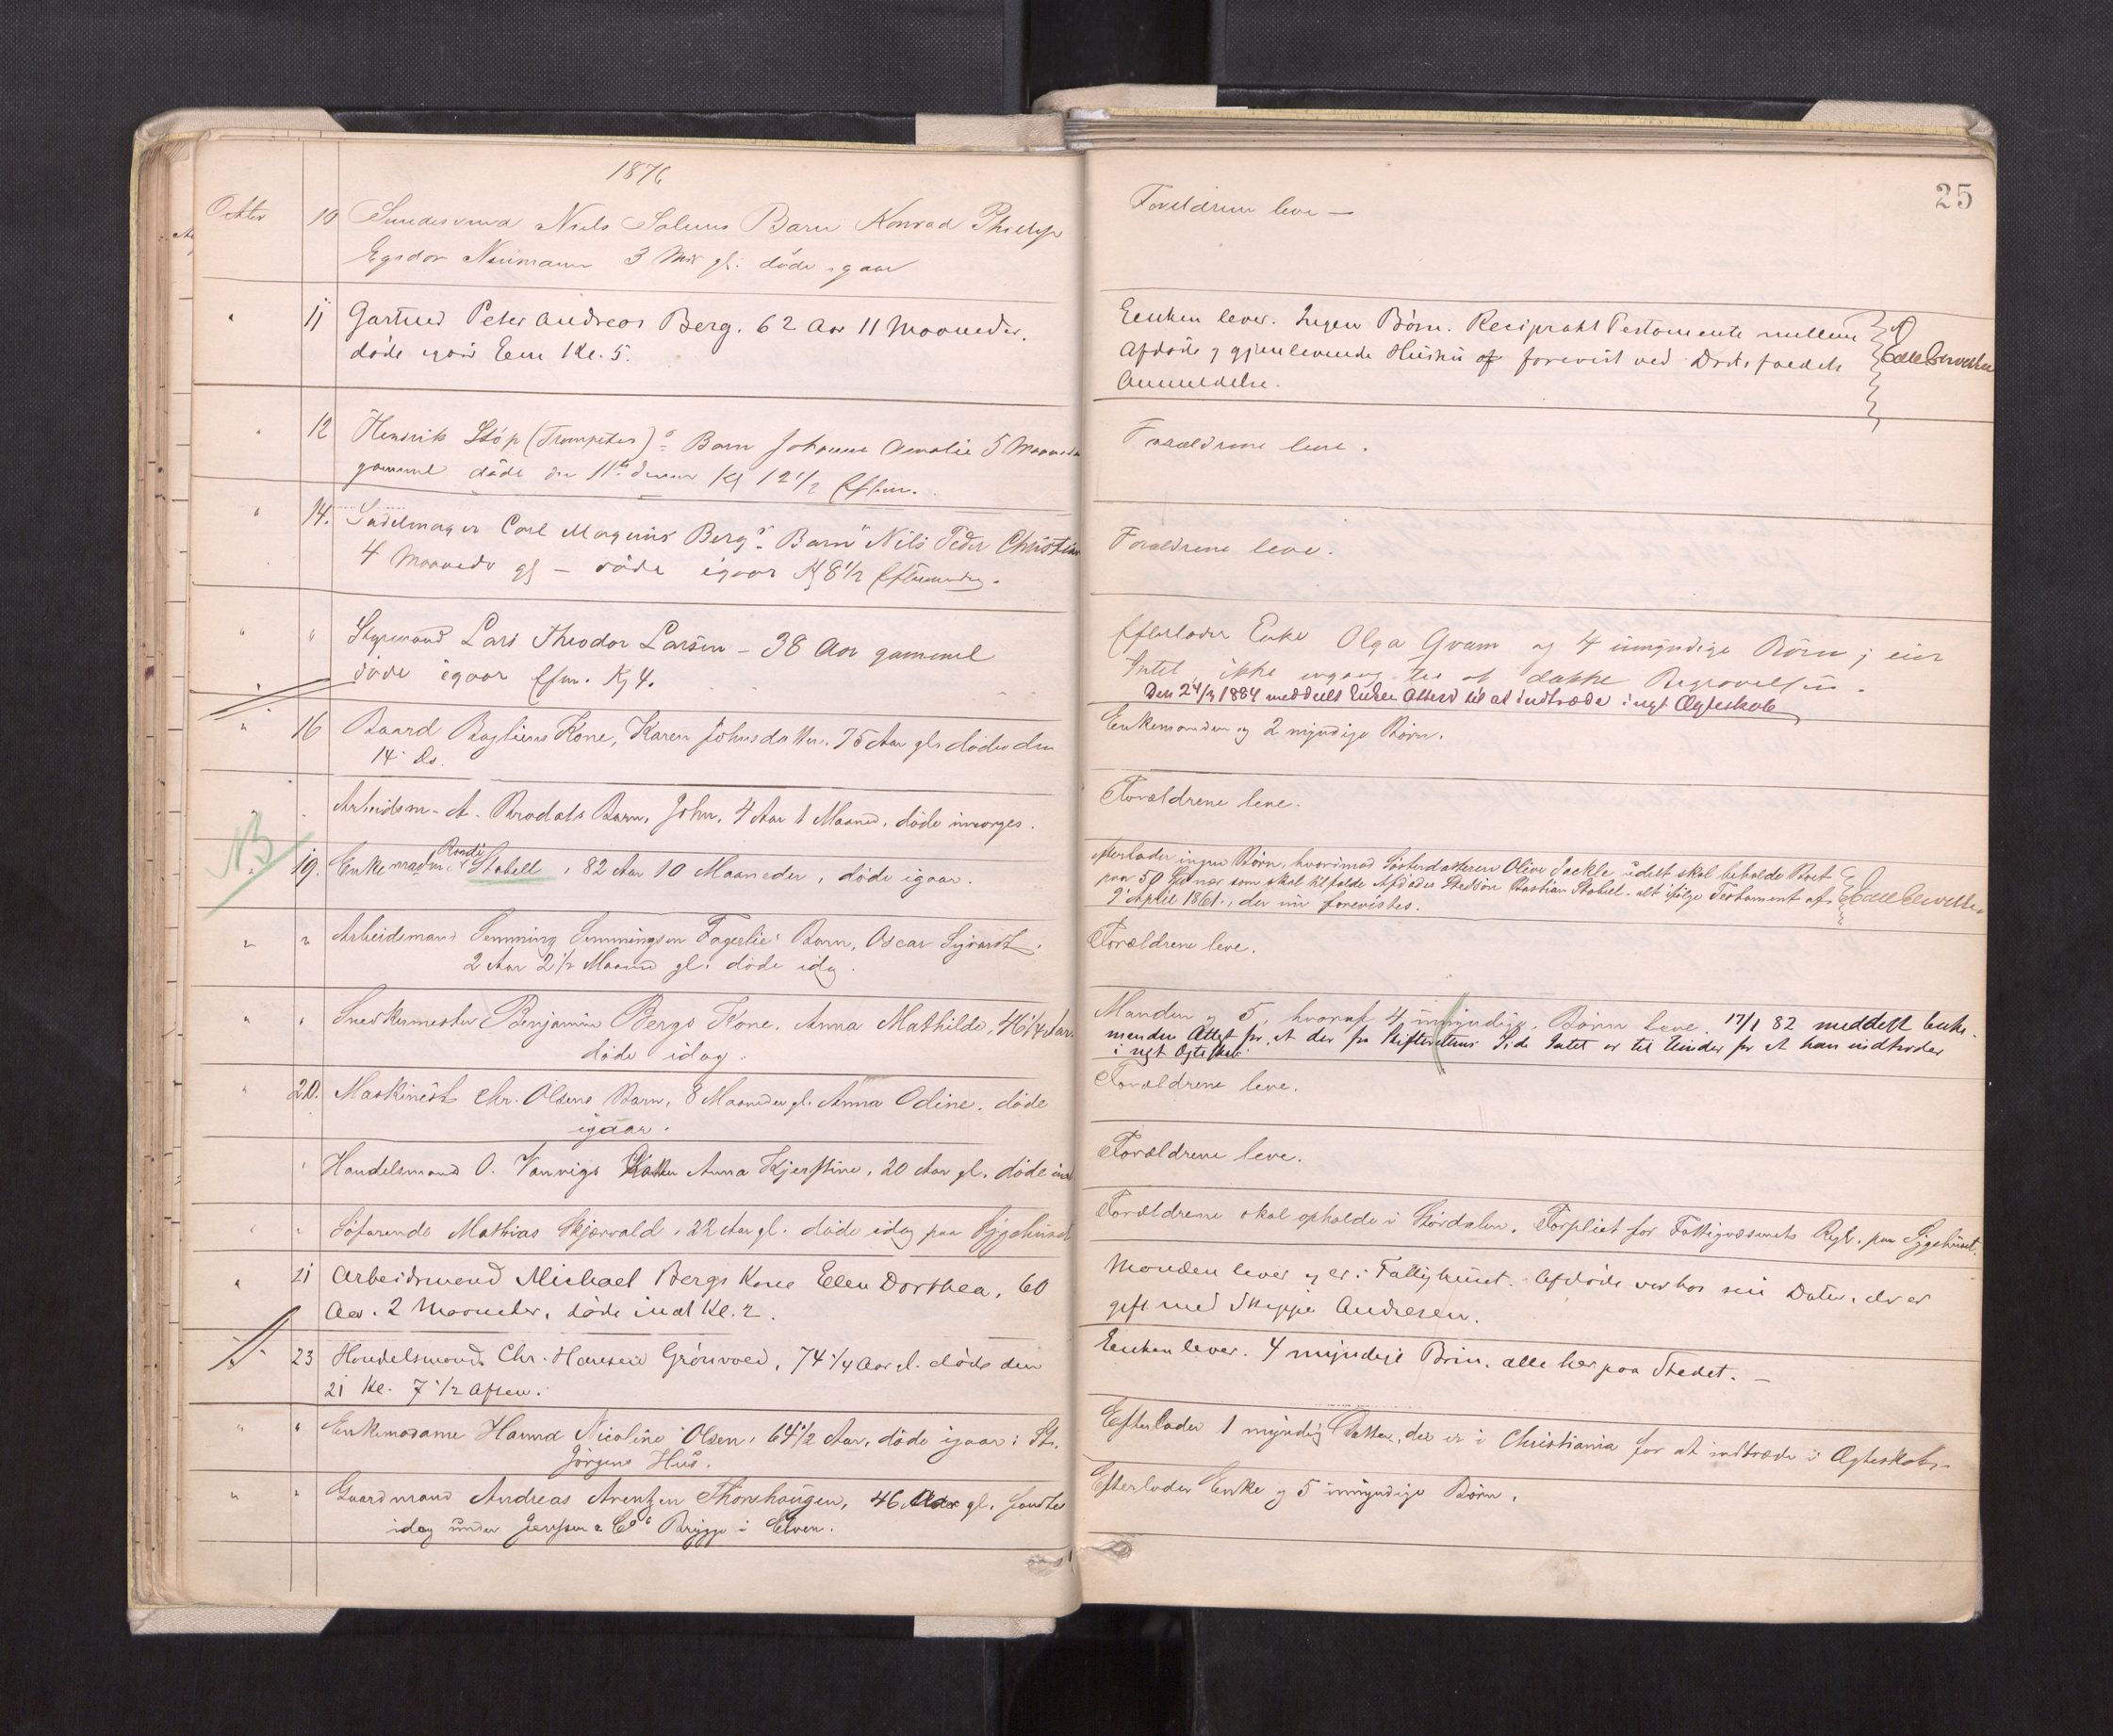 1876
25
Octbr 10 Niels Barn Konrad
3 gl. døde igaar
Forældrene leve —
" 11 Gartner Peter Andreas Berg. 62 Aar 11 Maaneder.
døde igaar Em Kl. 5.
Enken lever. Ingen Børn. Resiprokt Testamente mellem
Afdøde og gjenlevende Hustru forevist ved Dødsfaldets
Anmeldelse.
" 12 Henrik Støp (Trompeter)s Barn Johanne Amalie 5 Maaneder
gammel døde den 11te dennes Kl 12 1/2 Efterm.
Forældrene leve.
" 14. Sadelmager Carl Magnus Bergs Barn Nils Peder Christian
4 Maaneder gl — døde igaar Kl 8 1/2 Eftermiddag.
Forældrene leve.
" " Styrmand Lars Theodor Larsen — 38 Aar gammel
døde igaar Efm. Kl 4.
Efterlader Enke Olga Qvam og 4 umyndige Børn; eier
Intet, ikke engang til at dække Begravelsen.
Den 24/3 1884 meddelt Enken Attest til at indtræde i nyt Ægteskab
" 16 Baard Kone, Karen Johnsdatter. 75 Aar gl. døde den
14 ds.
Enkemanden og 2 myndige Børn.
" " Arbeidsm. A. Brodals Barn, John, 4 Aar 1 Maaned, døde imorges.
Forældrene leve.
NB
" 19. Enkemadm. Stabell, 82 Aar 10 Maaneder, døde igaar.
efterlader ingen Børn, hvorimod Søsterdatteren Olive Jackle skal beholde Boet
paa 50 som skal tilfalde Afdødes Stedsøn Bastian Stabel. alt ifølge Testament af
9 April 1861., der forevistes.
" " Arbeidsmand Semming Semmingsen Fagerlies Barn, Oscar Sigvardt.
2 Aar 2 1/2 Maaned gl. døde idag.
Forældrene leve.
" " Snedkermester Benjamin Bergs Kone, Anna Mathilde, 46 1/4 Aar.
døde idag.
Manden og 5, hvoraf 4 umyndige, Børn leve. 17/1 82 meddelt Enke-
manden Attest for, at der fra Skifterettens Side Intet er til Hinder for at han indtræder
i nyt Ægteskab.
" 20. Maskinist Chr. Olsens Barn, 8 Maaneder gl. Anna Odine. døde
igaar.
Forældrene leve.
" Handelsmand O. Vanvigs Datter Anna Kjerstine, 20 Aar gl. døde
Forældrene leve.
" " Søfarende Mathias Skjærvald, 22 Aar gl. døde idag paa Sygehuset
Forældrene skal opholde i Størdalen. Forpleiet for Fattigvæsenets Regn. paa Sygehuset.
" 21 Arbeidsmand Michael Bergs Kone Ellen Dorthea, 60
Aar. 2 Maaneder, døde inat Kl. 2.
Manden lever og er i Fattighuset. Afdøde var hos sin Datter, der er
gift med Skipper Andresen.
23 Handelsmand Chr. Hansen Grönvold, 74 1/4 Aar gl. døde den
21 Kl. 7 1/2 Aften.
Enken lever. 4 myndige Børn, alle her paa Stedet. —
" " Enkemadame Hanna Nicoline Olsen, 64 1/2 Aar, døde igaar i St.
Jørgens Hus.
Efterlader 1 myndig Datter, der er i Christiania for at indtræde i Ægteskab.
" " Gaardmand Andreas Arentzen Thonshaugen, 46 Aar gl. fandtes
idag under Jenssen & Cos Brygge i Elven.
Efterlader Enke og 5 umyndige Børn.